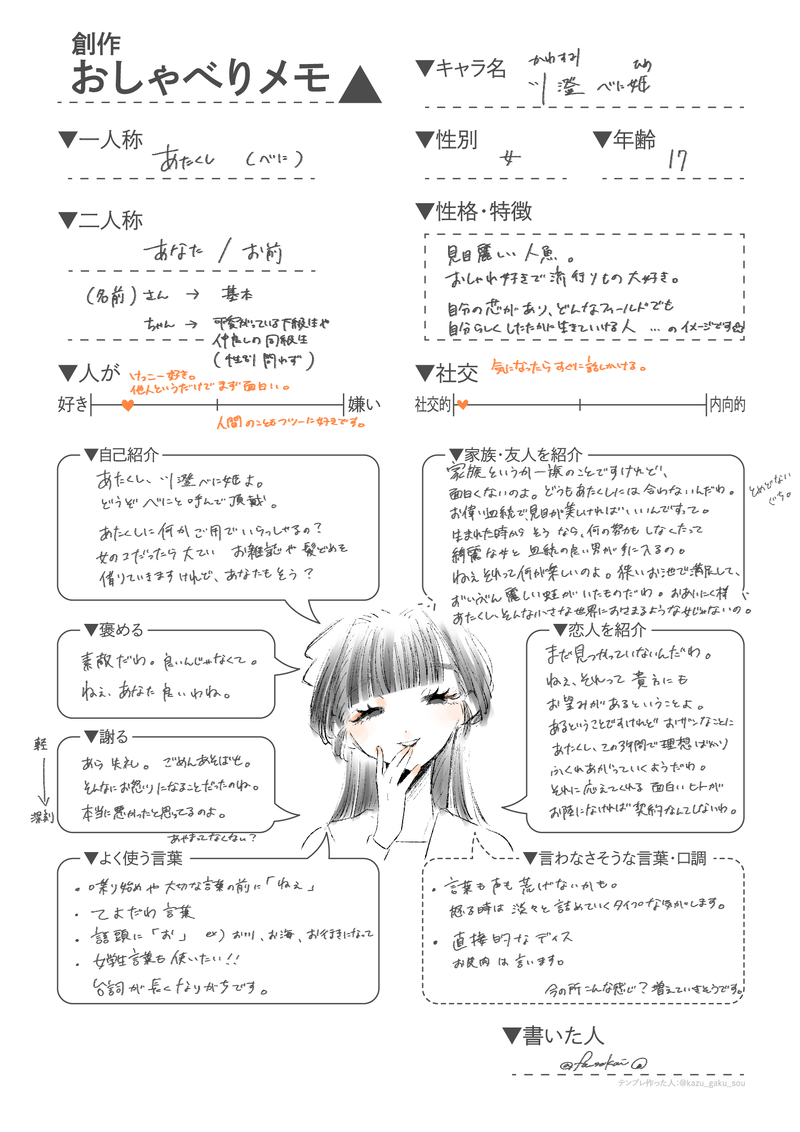 創作
おしゃべりメモ
▼キャラ名
かわすみ ひめ
川澄 べに姫
▼一人称
あたくし (べに)
▼性別
女
▼年齢
17
▼二人称
あなた / お前
(名前)さん → 基本
ちゃん → 可愛がっている下級生や
仲良しの同級生
(性別問わず)
▼性格・特徴
見目麗しい人魚。
おしゃれ好きで流行りもの大好き。
自分の芯があり、どんなフィールドでも
自分らしくしたたかに生きていける人 …のイメージです
▼人が
けっこー好き。
他人というだけでまず面白い。
好き
嫌い
人間のこともフツーに好きです。
▼社交
気になったらすぐに話しかける。
社交的
内向的
▼自己紹介
あたくし、川澄べに姫よ。
どうぞべにと呼んで頂戴。
あたくしに何かご用でいらっしゃるの?
女の子だったら大てい お雑誌や髪どめを
借りていきますけれど、あなたもそう?
▼家族・友人を紹介
家族というか一族のことですけれど、
面白くないのよ。どうもあたくしには合わないんだわ。
お偉い血統で、見目が美しければいいんですって。
生まれた時からそうなら、何の努力もしなくたって
綺麗な女と血統の良い男が手に入るの。
ねぇ それって何が楽しいのよ。狭いお池で満足して、
ずいぶん麗しい蛙がいたものだわ。おあいにく様
あたくし、そんな小さな世界におさまるような女じゃないの。
とめどない
ぐち。
▼褒める
素敵だわ。良いんじゃなくて。
ねぇ、あなた良いわね。
▼恋人を紹介
まだ見つかっていないんだわ。
ねぇ、それって貴方にも
お望みがあるということよ。
あるということですけれど おザンなことに
あたくし、この3年間で理想ばかり
ふくれあがっていくようだわ。
それに応えてくれる面白いヒトが
お隣になければ契約なんてしないわ。
▼謝る
軽
深刻
あら失礼。ごめんあそばせ。
そんなにお怒りになることだったのね。
本当に悪かったと思ってるのよ。
あやまってなくない?
▼よく使う言葉
・喋り始めや大切な言葉の前に「ねぇ」
・てよだわ言葉
・語頭に「お」 ex) お川、お海、お行きになって
・女学生言葉も使いたい!!
台詞が長くなりがちです。
▼言わなさそうな言葉・口調
・言葉も声も荒げないかも。
怒る時は淡々と詰めていくタイプな気がします。
・直接的なディス
お身内は言います。
今の所こんな感じ?増えていきそうです。
▼書いた人
テンプレ作った人:@kazu_gaku_sou